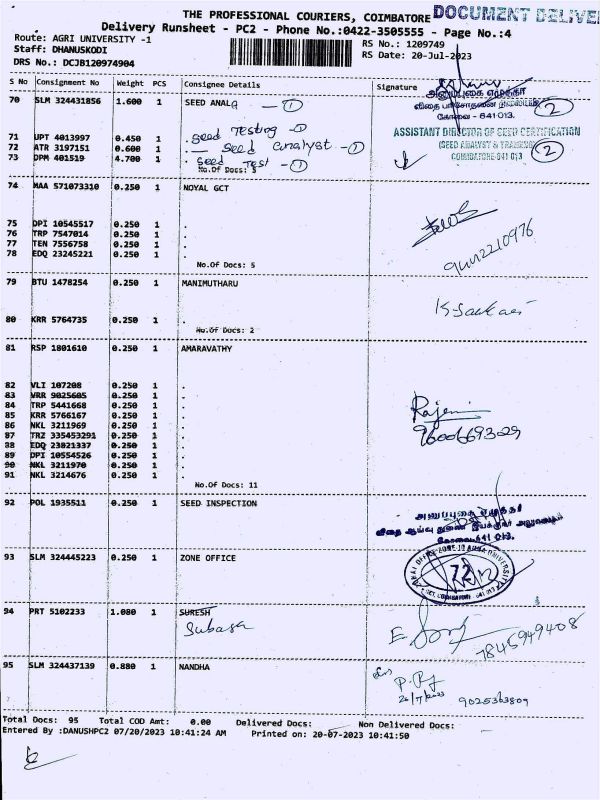 THE PROFESSIONAL COURIERS, COIMBATORE DOCUMENT DELIVE
Delivery Runsheet - PC2 - Phone No.:0422-3505555 - Page No.:4
Route: AGRI UNIVERSITY -1
RS No.: 1209749
Staff: DHANUSKODI
RS Date: 20-Jul-2023
DRS No.: DCJB120974904
S No Consignment No Weight PCS Consignee Details Signature
70 SLM 324431856 1.600 1 SEED ANALQ — 1
கோவை - 641 013.
2
71 UPT 4013997 0.450 1 . Seed Testing - 1
ASSISTANT DIRECTOR OF SEED CERTIFICATION
72 ATR 3197151 0.600 1 . — Seed analyst - 1
(SEED ANALYST & TRAINING)
2
73 DPM 401519 4.700 1 . Seed Test - 1
COIMBATORE-641 013
No.Of Docs: 5
74 MAA 571073310 0.250 1 NOYAL GCT
75 DPI 10545517 0.250 1 .
76 TRP 7547014 0.250 1 .
77 TEN 7556758 0.250 1 .
78 EDQ 23245221 0.250 1 .
No.Of Docs: 5
79 BTU 1478254 0.250 1 MANIMUTHARU
80 KRR 5764735 0.250 1 .
No.Of Docs: 2
81 RSP 1801610 0.250 1 AMARAVATHY
82 VLI 107208 0.250 1 .
83 VRR 9025605 0.250 1 .
84 TRP 5441668 0.250 1 .
85 KRR 5766167 0.250 1 .
86 NKL 3211969 0.250 1 .
87 TRZ 335453291 0.250 1 .
88 EDQ 23821337 0.250 1 .
89 DPI 10554526 0.250 1 .
90 NKL 3211970 0.250 1 .
91 NKL 3214676 0.250 1 .
Rajeni
9600669329
No.Of Docs: 11
92 POL 1935511 0.250 1 SEED INSPECTION
கோவை 641 013.
93 SLM 324445223 0.250 1 ZONE OFFICE
72
94 PRT 5102233 1.080 1 SURESH
Subasa
7845949408
95 SLM 324437139 0.880 1 NANDHA
20/7/2023
9025363809
Total Docs: 95 Total COD Amt: 0.00 Delivered Docs: Non Delivered Docs:
Entered By :DANUSHPC2 07/20/2023 10:41:24 AM Printed on: 20-07-2023 10:41:50